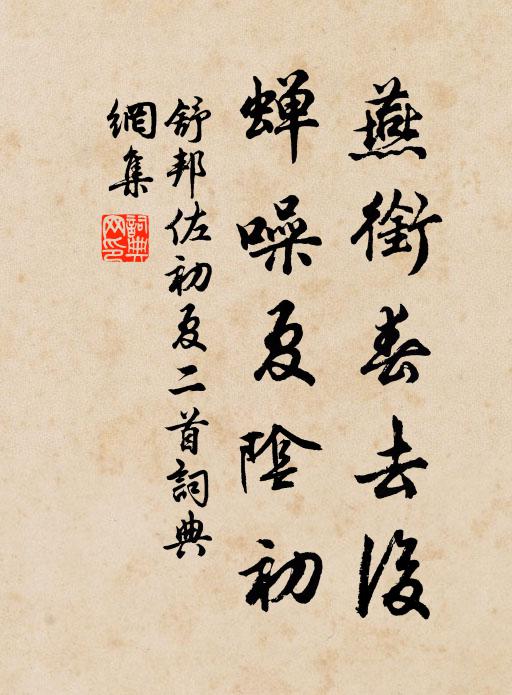 燕銜春去後
蟬噪夏陰初
舒邦佐初夏二首詞典
網集
詞典網印